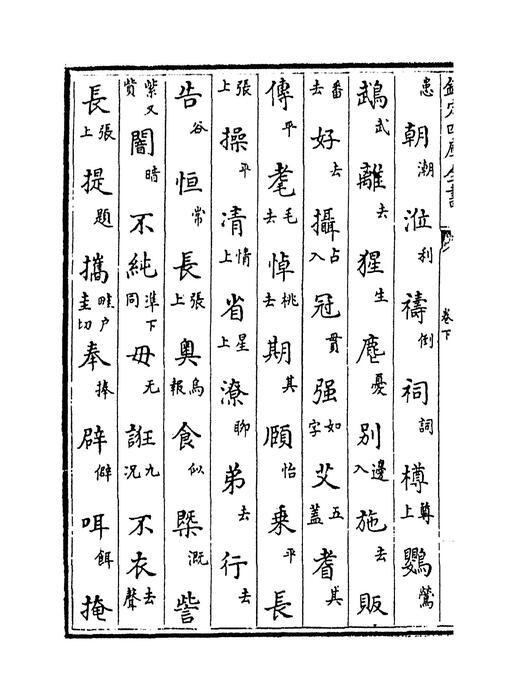 欽定四庫全書 卷下
患 朝潮 涖利 禱倒 祠詞 樽尊上 鸚鶯
鵡武 離去 猩生 麀憂 别邊入 施去 販
番去 好去 攝占入 冠貫 强如字 艾五蓋 耆其
傳平 耄毛去 悼桃去 期其 頤怡 乗平 長
張上 操平 清情上 省星上 潦聊 弟去 行去
告谷 恒常 長張上 奥烏報 食似 槩溉 訾
紫又貲 闇暗 不純準下同 毋无 誑九況 不衣去聲
長張上 提題 攜畦户圭切 奉捧 辟僻 咡餌 掩